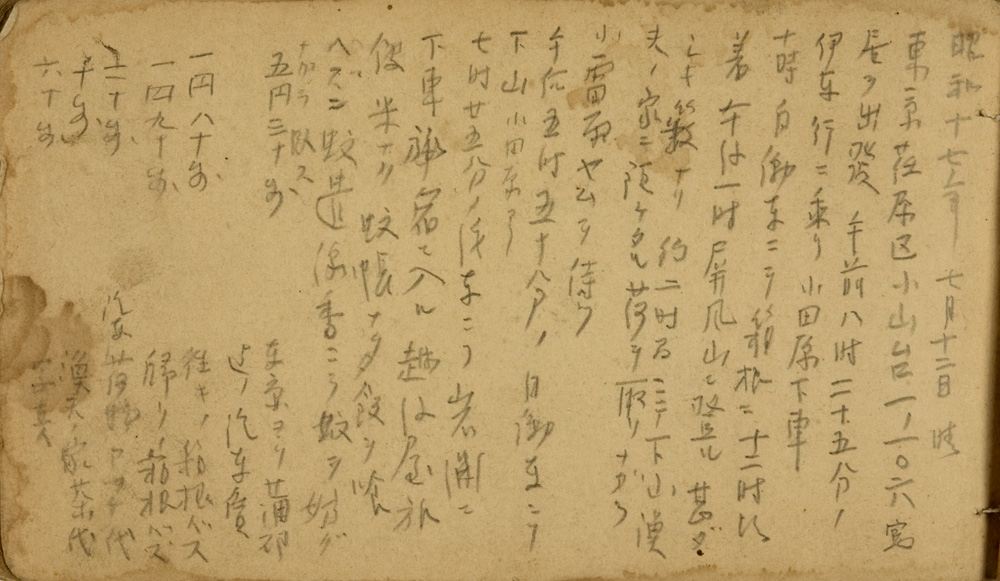 昭和十七年 七月十二日 晴
東京荏原区小山台一ノ一〇六寓
居ヲ出発 午前八時二十五分ノ
伊東行ニ乗リ 小田原下車
十時 自働車ニテ箱根ニ十一時頃
着 午后一時屏風山ニ登ル 甚ダ
シキ藪ナリ 約二時間ニシテ下山
夫ノ家ニ預ケタル荷ヲ取リナガラ
小雷雨ヤムヲ待ツ
午后五時五十分ノ 自働車ニテ
下山 小田原ヨリ
七時廿五分ノ汽車ニテ 岩淵ニ
下車 旅宿ニ入ル 越後屋旅
米ナク 蚊帳ナク 飯ヲ喰
蚊遣線香ニテ蚊ヲ
ナガラ臥ス
五円三十銭 東京ヨリ蒲郡 迄ノ汽車賃
一円八十銭 往キノ箱根バス
一四九十銭 帰リノ箱根バス
二十銭 汽車荷物 代
五十銭 漁夫ノ家茶代
六十銭